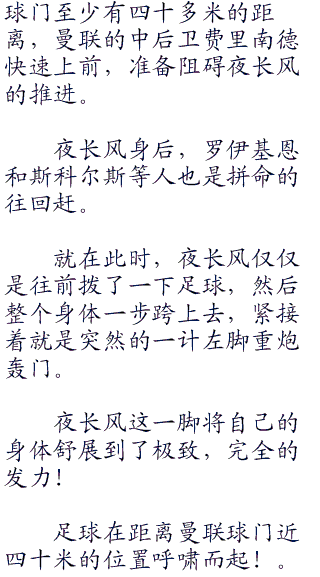 球门至少有四十多米的距
离，曼联的中后卫费里南德
快速上前，准备阻碍夜长风
的推进。
夜长风身后，罗伊基恩
和斯科尔斯等人也是拼命的
往回赶。
就在此时，夜长风仅仅
是往前拨了一下足球，然后
整个身体一步跨上去，紧接
着就是突然的一计左脚重炮
轰门。
夜长风这一脚将自己的
身体舒展到了极致，完全的
发力！
足球在距离曼联球门近
四十米的位置呼啸而起！。